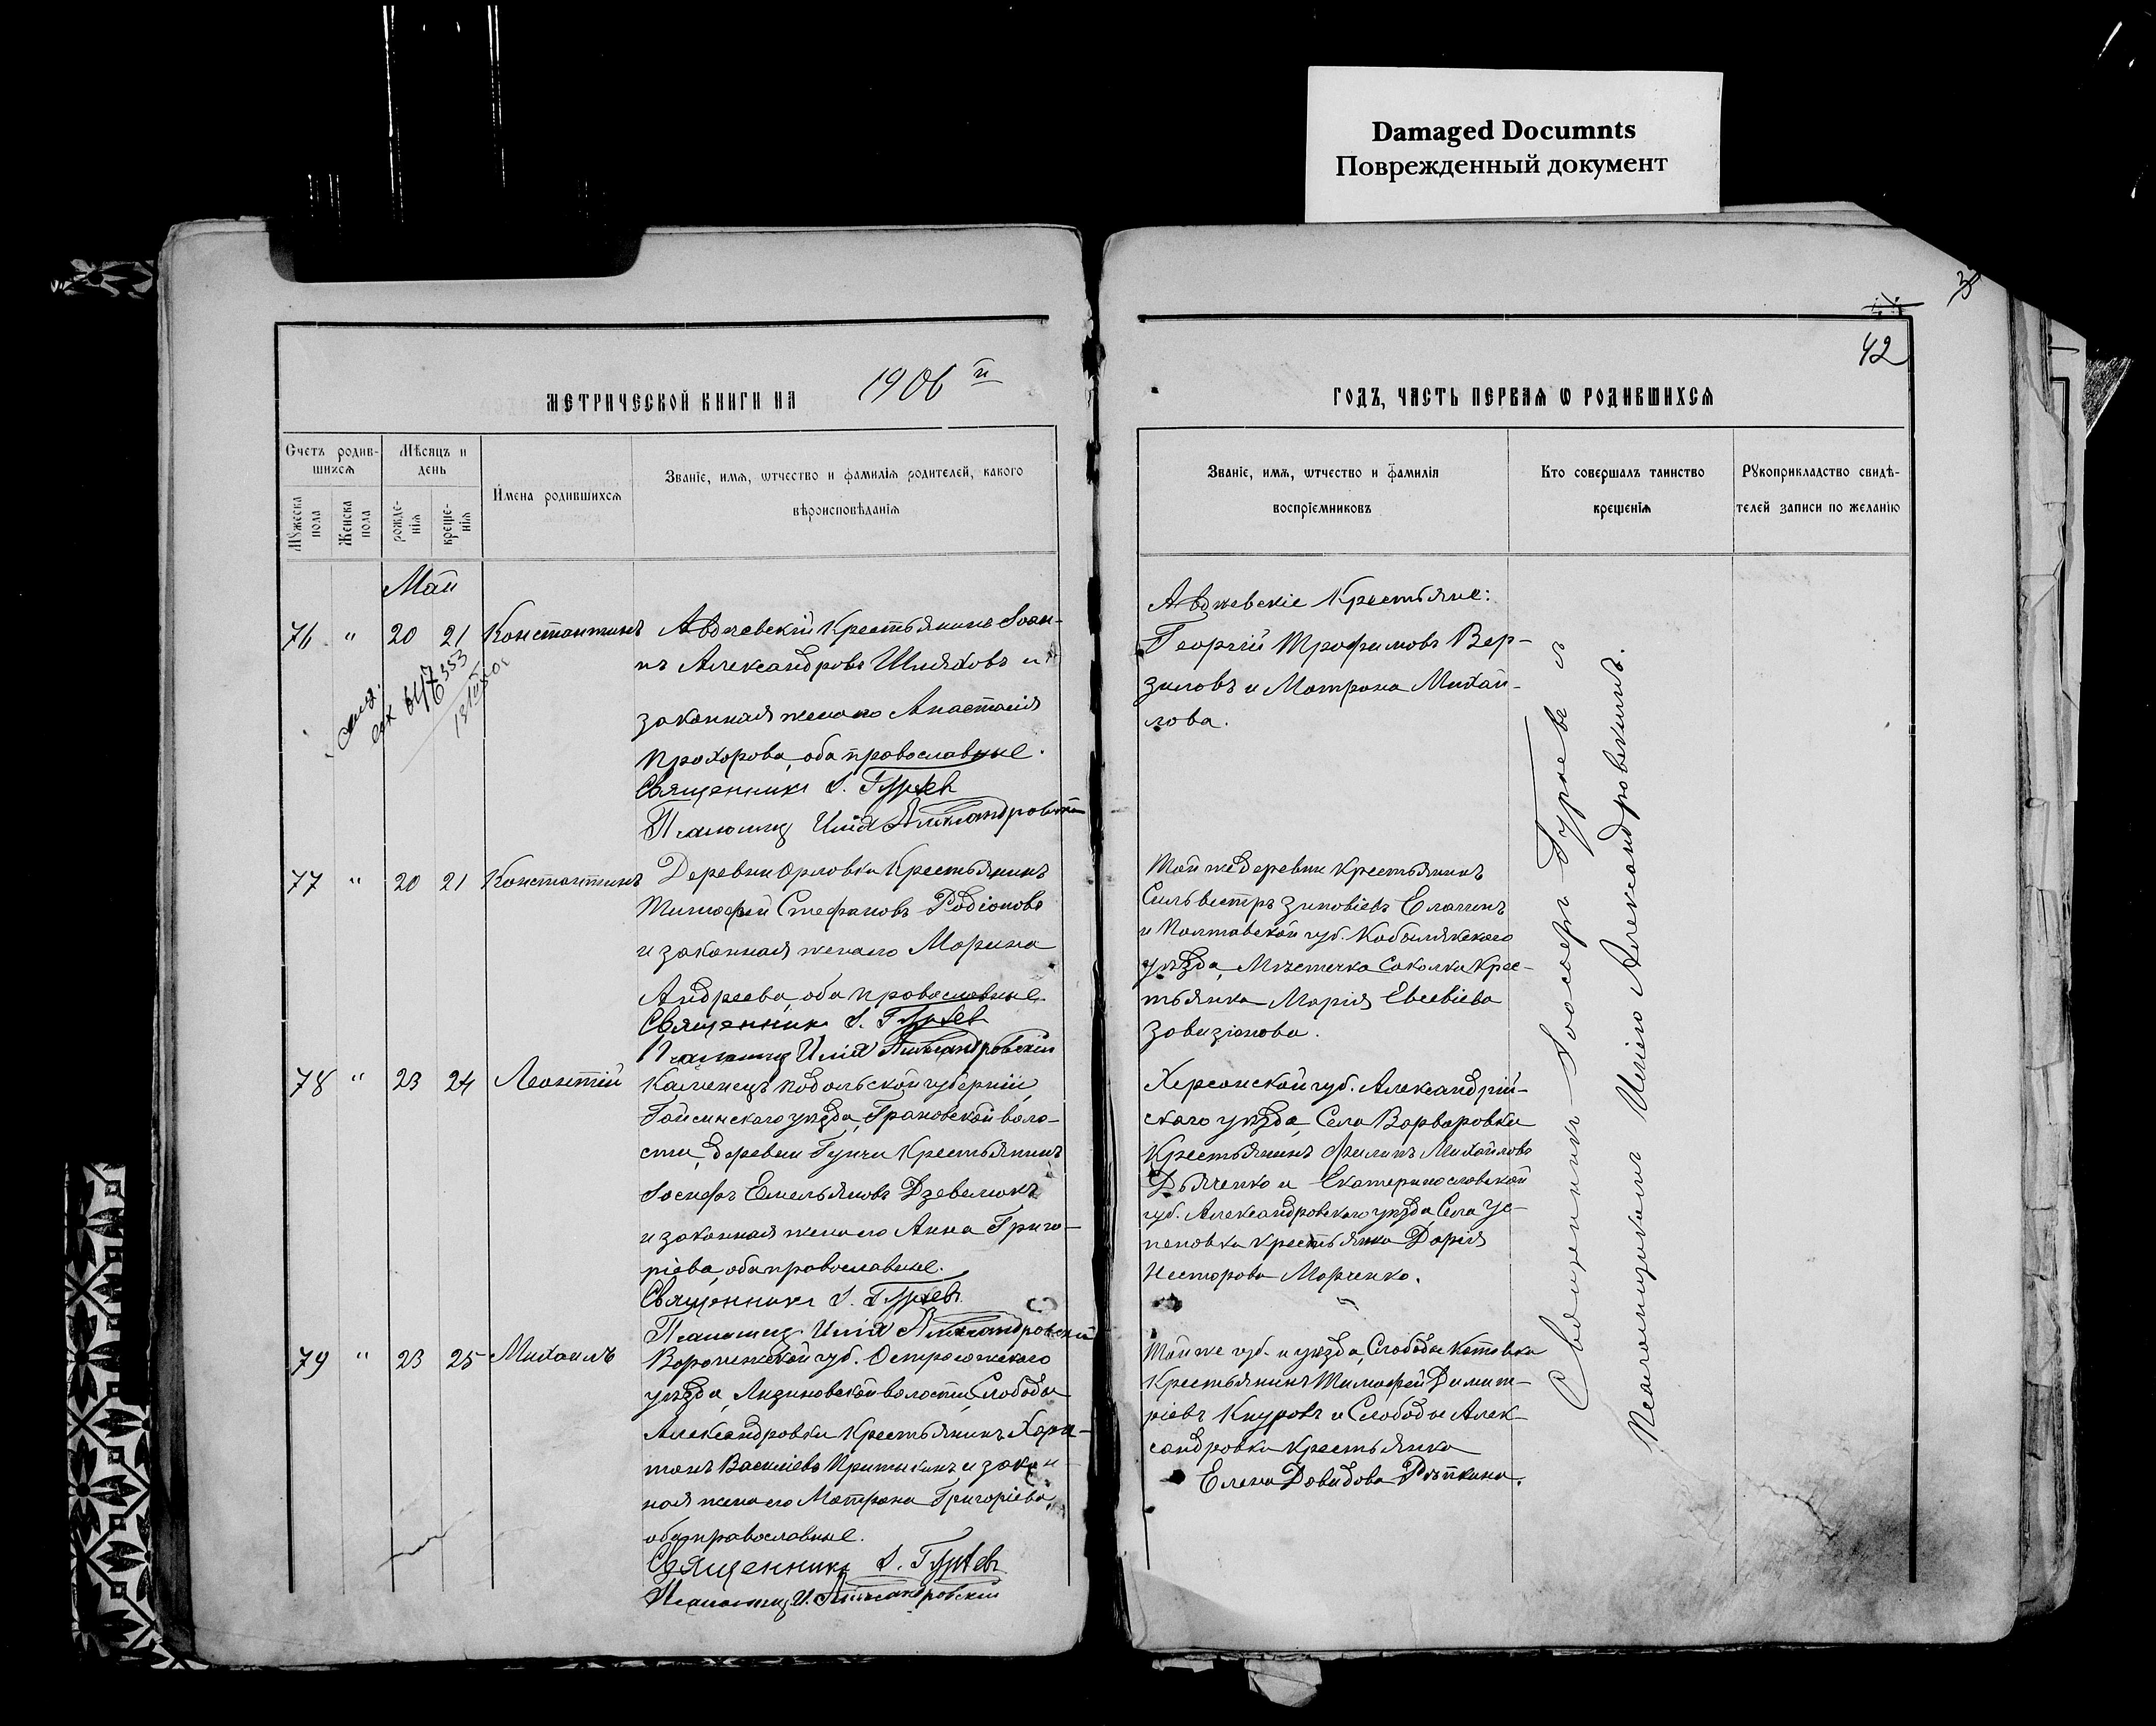 Damaged Documnts
Поврежденный документ
42
МЕТРИЧЕСКОЙ КНИГИ НА 1906 й
ГОДЪ, ЧАСТЬ ПЕРВАЯ Ѡ РОДИВШИХСЯ
Счетъ родив-
шихся
Мужеска
пола
Женска
пола
Мѣсяцъ и
день
рожде-
нія
креще-
нія
Имена родившихся
Званіе, имя, ѡтчество и фамилія родителей, какого
вѣроисповѣданія
Званіе, имя, ѡтчество и фамилія
воспріемниковъ
Кто совершалъ таинство
крещенія
Рукоприкладство свидѣ-
телей записи по желанію
Май
76 " 20 21 Константинъ
Авдѣевскій Крестьянинъ Іоан-
нъ Александровъ Шляховъ и
законная жена его Анастасія
Прохорова, оба православные.
Священникъ І. Гурѣевъ
Псаломщ Илія Александровскій
Авдѣевскіе Крестьяне:
Георгій Трофимовъ Вер-
зиловъ и Матрона Михай-
лова.
77 " 20 21 Константинъ
Деревни Орловки Крестьянинъ
Тимофей Стефановъ Родіоновъ
и законная жена его Марина
Андреева, оба православные.
Священникъ І. Гурѣевъ
Псаломщ Илія Александровскій
Той же деревни крестьянинъ
Сильвестръ Зиновіевъ
и Полтавской губ. Кобылякскаго
уѣзда, Мѣстечка Соколки Крес-
тьянка Марія Евсевіева
78 " 23 24 Леонтій
Каменецъ Подольской губерніи,
Гайсинскаго уѣзда, Грановской воло-
сти, деревни Гунчи Крестьянинъ
Іосифъ Емельяновъ Дзевелюкъ
и законная жена его Анна Григо-
ріева, оба православные.
Священникъ І. Гурѣевъ
Псаломщ Илія Александровскій
Херсонской губ. Александрій-
скаго уѣзда, Села Варваровки
Крестьянинъ Филипъ Михайловъ
Дьяченко и Екатеринославской
губ. Александровскаго уѣзда, Села Ус-
пеновки крестьянка Дарія
Несторова Марченко.
79 " 23 25 Михаилъ
Воронежской губ. Острогожскаго
уѣзда, Лизиновской волости, Слободы
Александровки Крестьянинъ Хари-
тонъ Василіевъ Притыкинъ и закон-
ная жена его Матрона Григоріева,
оба православные.
Священникъ І. Гурѣевъ
Псаломщ И. Александровскій
Той же губ. и уѣзда, Слободы
Крестьянинъ Тимофей Димит-
ріевъ Кнуровъ и Слободы Алек-
сандровки крестьянка
Елена Давидова Рѣпкина.
Священникъ Іосифъ Гурѣевъ съ
Псаломщикомъ Иліею Александровскимъ.